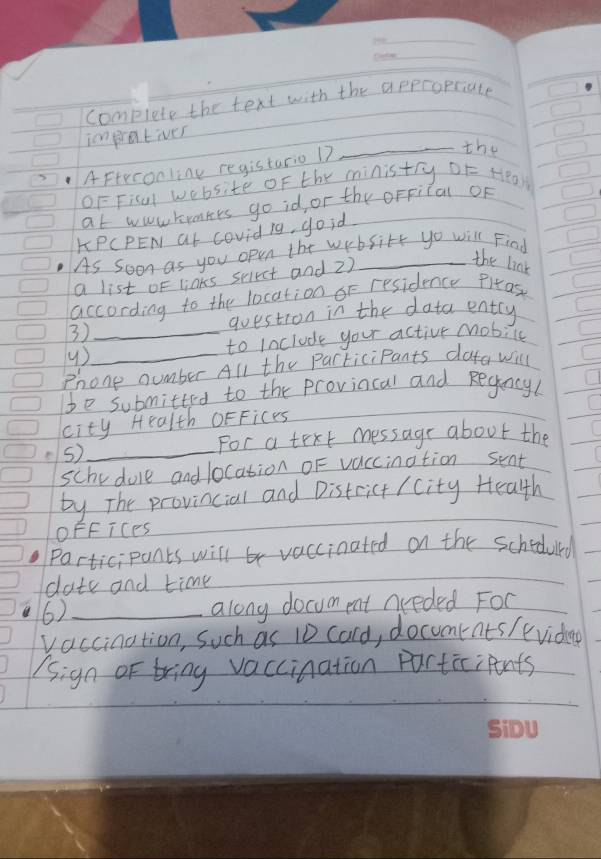 complete the text with the appropriate
imprativer
• After online registario 1) ________ the
OF Fisal website OF the ministry OF Heal
at www go id, or the OFFical OF
KPCPEN at covid 19. go id
• As soon as you open the website yo will Find
a list OF links select and 2) ________ the link
according to the location OF residence Please
3) ________ question in the data entry
4) ________ to include your active mobile
Phone number All the participants data will
be submitted to the provincal and Regency/
city Health OFFices
• 5) ________ For a text message about the
schedule and location OF vaccination sent
by The provincial and District/City Health
OFFices
• Participants will be vaccinated on the scheduled
date and time
• 6) ________ along document needed For
vaccination, such as ID card, documents/evidence
/sign OF bring vaccination Participants
SiDU